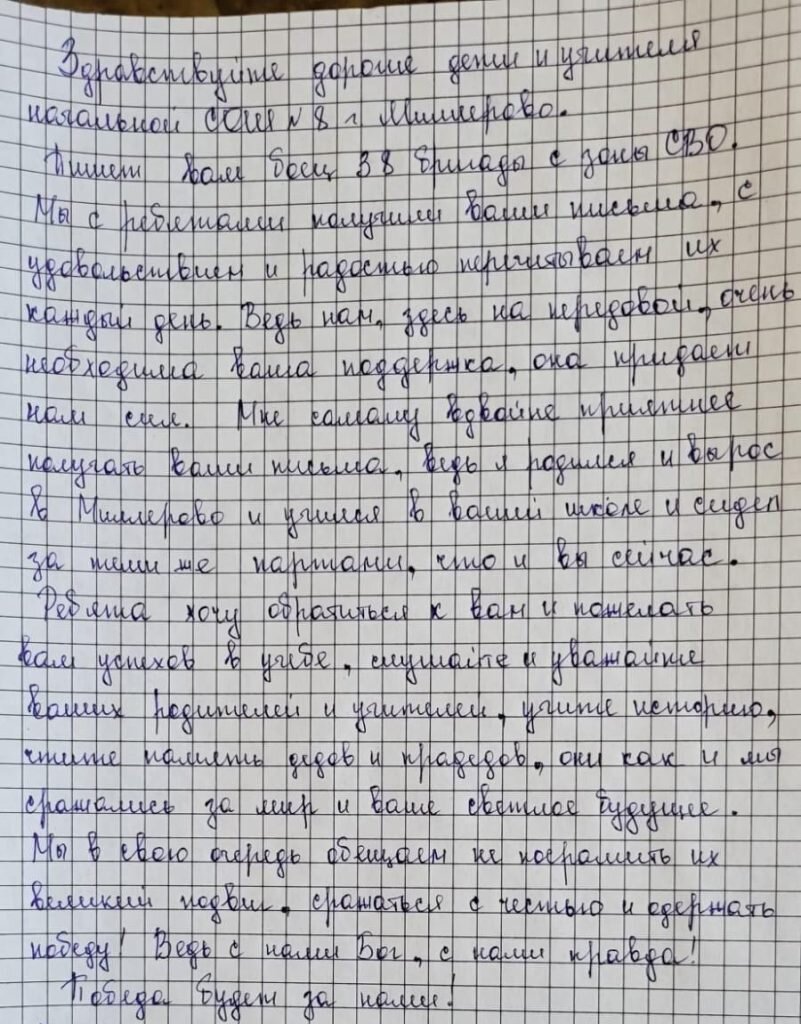 Здравствуйте дорогие дети и учителя
начальной СОШ №8 г. Миллерово.
Пишет вам боец 38 бригады с зоны СВО.
Мы с ребятами получили ваши письма, с
удовольствием и радостью перечитываем их
каждый день. Ведь нам, здесь на передовой, очень
необходима ваша поддержка, она придает
нам сил. Мне самому вдвойне приятнее
получать ваши письма, ведь я родился и вырос
в Миллерово и учился в вашей школе и сидел
за теми же партами, что и вы сейчас.
Ребята хочу обратиться к вам и пожелать
вам успехов в учебе, слушайте и уважайте
ваших родителей и учителей, учите историю,
чтите память дедов и прадедов, они как и мы
сражались за мир и ваше светлое будущее.
Мы в свою очередь обещаем не посрамить их
великий подвиг, сражаться с честью и одержать
победу! Ведь с нами Бог, с нами правда!
Победа будет за нами!